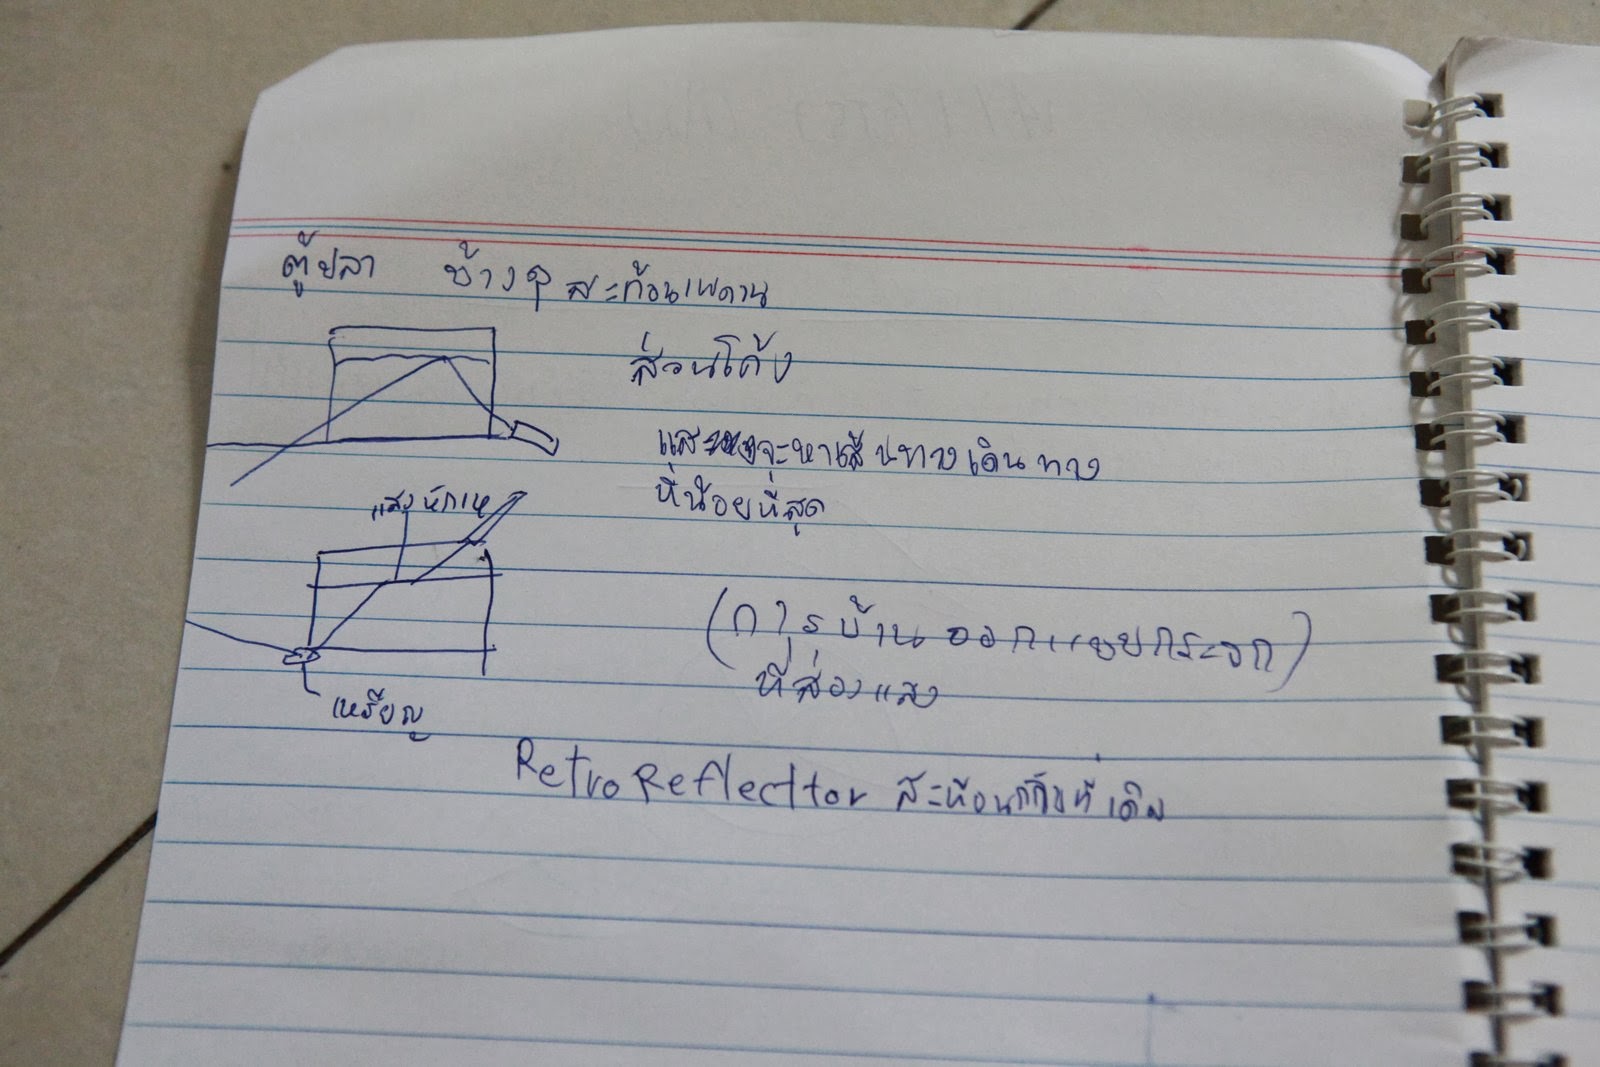 ตู้ปลา ข้างๆ สะท้อนเพดาน
ส่วนโค้ง
แสงจะหาเส้นทางเดินทาง
ที่น้อยที่สุด
แสงหักเห
เหรียญ
(การบ้าน ออกแบบกระจก)
ที่ส่องแสง
Retro Reflecttor สะท้อนกลับที่เดิม